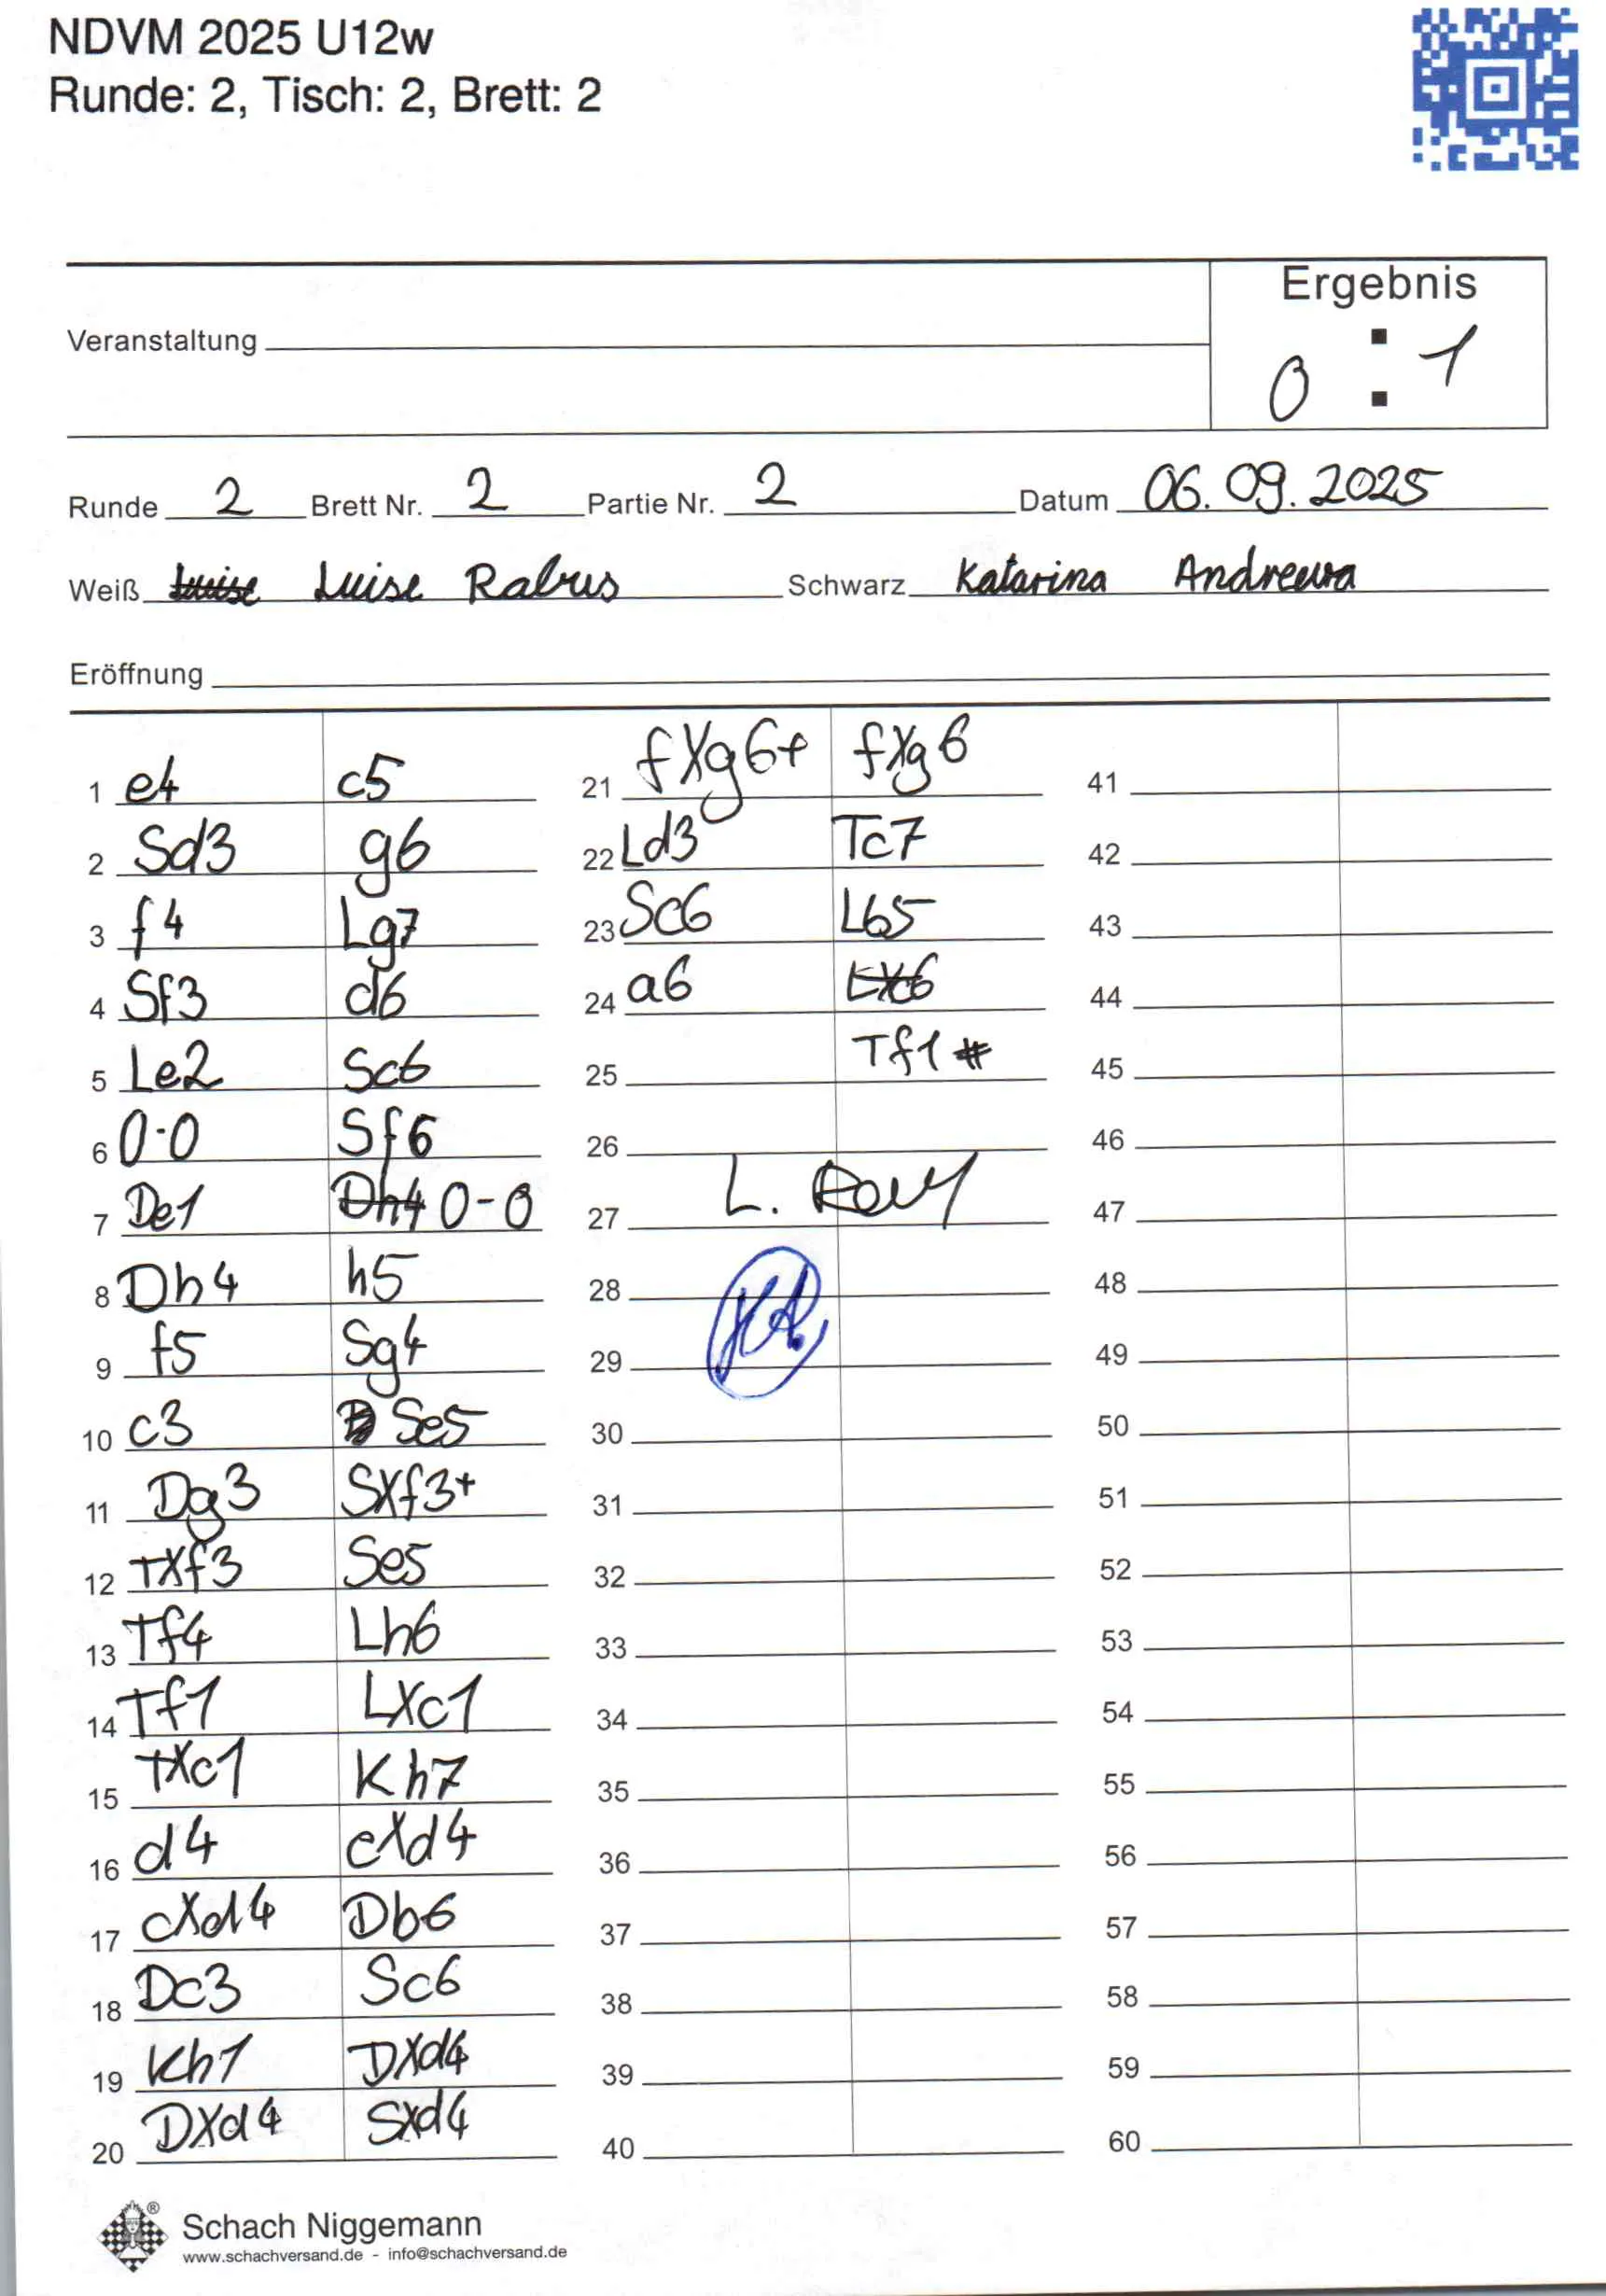 NDVM 2025 U12w
Runde: 2, Tisch: 2, Brett: 2
Ergebnis
0 : 1
Veranstaltung
Runde 2 Brett Nr. 2 Partie Nr. 2 Datum 06.09.2025
Weiß Luise Luise Rabus Schwarz Katarina Andreewa
Eröffnung
1 e4 c5
2 Sd3 g6
3 f4 Lg7
4 Sf3 d6
5 Le2 Sc6
6 0-0 Sf6
7 De1 Dh4 0-0
8 Dh4 h5
9 f5 Sg4
10 c3 Se5
11 Dg3 SXf3+
12 TXf3 Se5
13 Tf4 Lh6
14 Tf1 LXc1
15 TXc1 Kh7
16 d4 cXd4
17 cXd4 Db6
18 Dc3 Sc6
19 Kh1 DXd4
20 DXd4 SXd4
21 fXg6+ fXg6
22 Ld3 Tc7
23 Sc6 Lb5
24 a6 LXc6
25 Tf1#
26
27
28 KA
29
30
31
32
33
34
35
36
37
38
39
40
41
42
43
44
45
46
47
48
49
50
51
52
53
54
55
56
57
58
59
60
Schach Niggemann
www.schachversand.de - info@schachversand.de